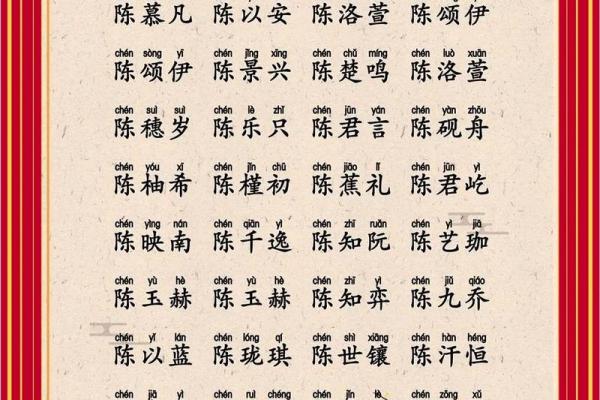 陈慕凡 陈以安 陈洛萱 陈颂伊
chén sòng yī chén jǐng xīng chén chǔ míng chén luò xuān
陈颂伊 陈景兴 陈楚鸣 陈洛萱
chén suì suì chén lè zhī chén jūn yán chén yàn zhōu
陈穗岁 陈乐只 陈君言 陈砚舟
chén yóu xī chén jǐn chū chén jiāo lǐ chén jūn yì
陈柚希 陈槿初 陈蕉礼 陈君屹
chén yìng nán chén qiān yì chén zhī ruǎn chén yì jiā
陈映南 陈千逸 陈知阮 陈艺珈
chén yù hè chén yù hè chén zhī yì chén jiǔ qiáo
陈玉赫 陈玉赫 陈知弈 陈九乔
chén yǐ lán chén lóng qí chén shì xiāng chén hàn héng
陈以蓝 陈珑琪 陈世镶 陈汗恒
chén jiā yì chén ruì chéng chén jīn lè chén zǒng xǔ